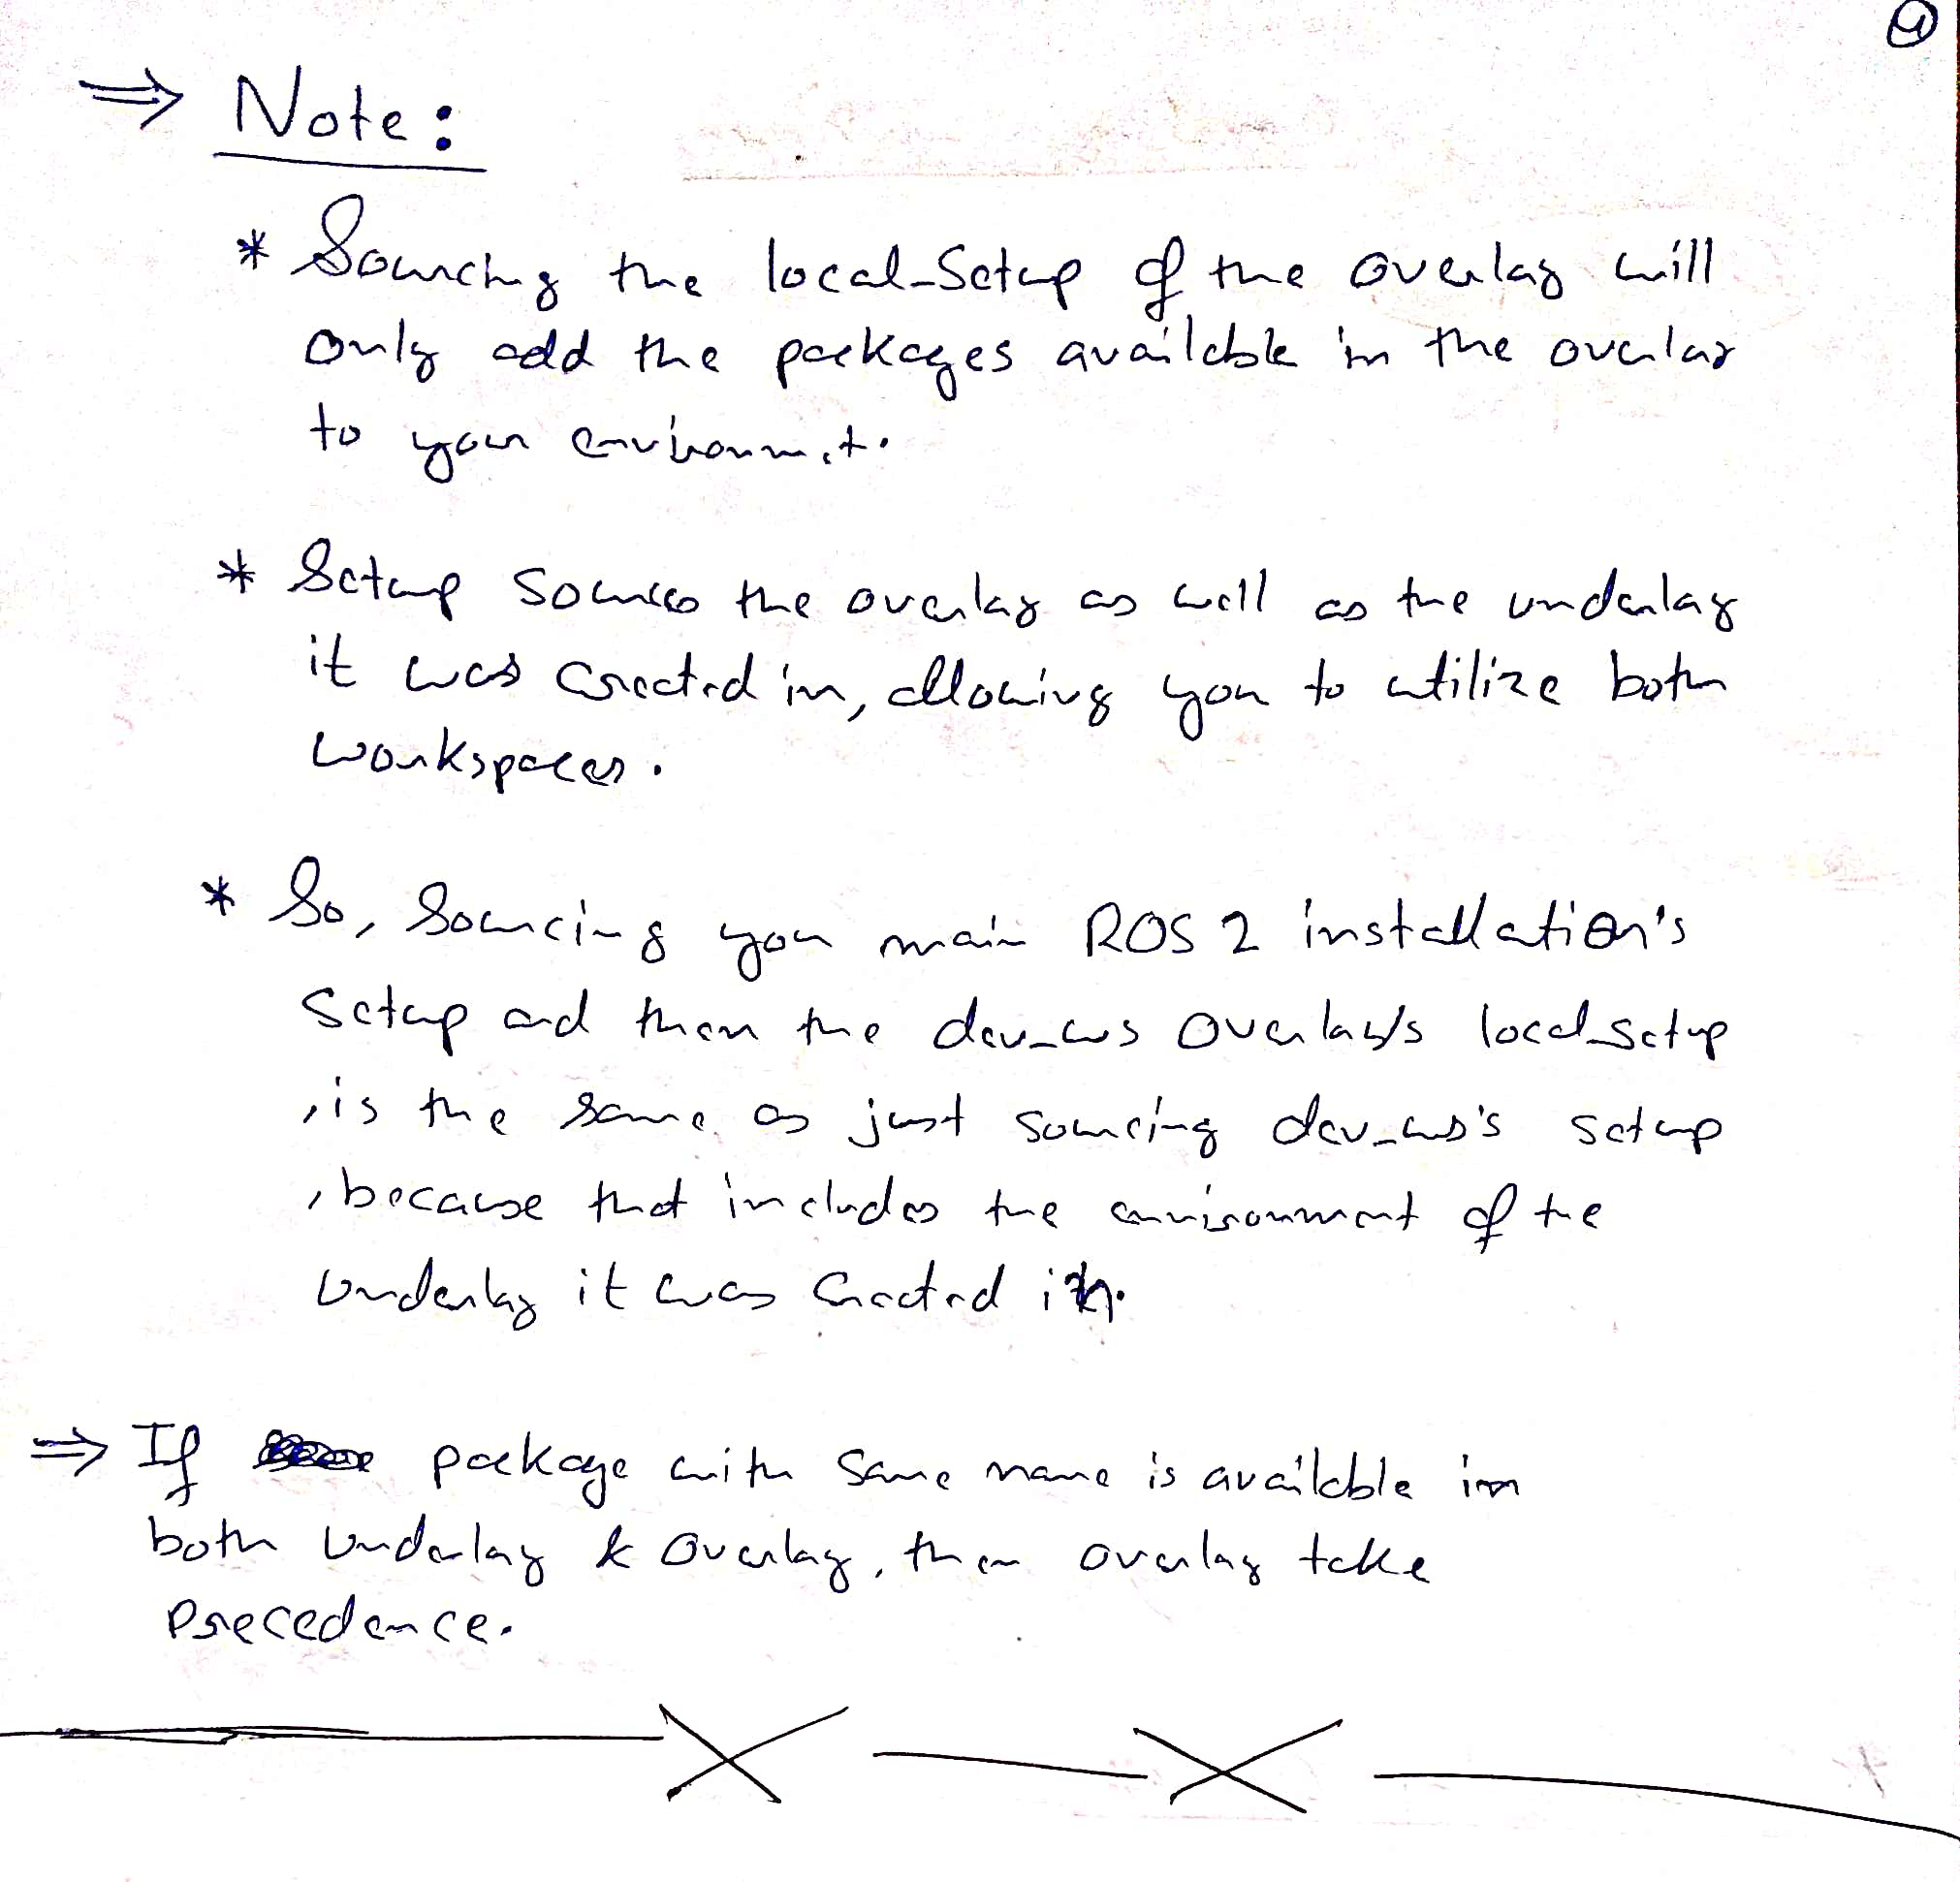 ⇒ Note:
* Sourcing the local_Setup of the overlay will
only add the packages available in the overlay
to your environment.
* Setup sources the overlay as well as the underlay
it was created in, allowing you to utilize both
workspaces.
* So, Sourcing your main ROS 2 installation's
Setup and then the dev_ws overlay's local_setup
, is the same as just sourcing dev_ws's setup
, because that includes the environment of the
underlay it was created in.
⇒ If package with same name is available in
both underlay & overlay, then overlay take
precedence.